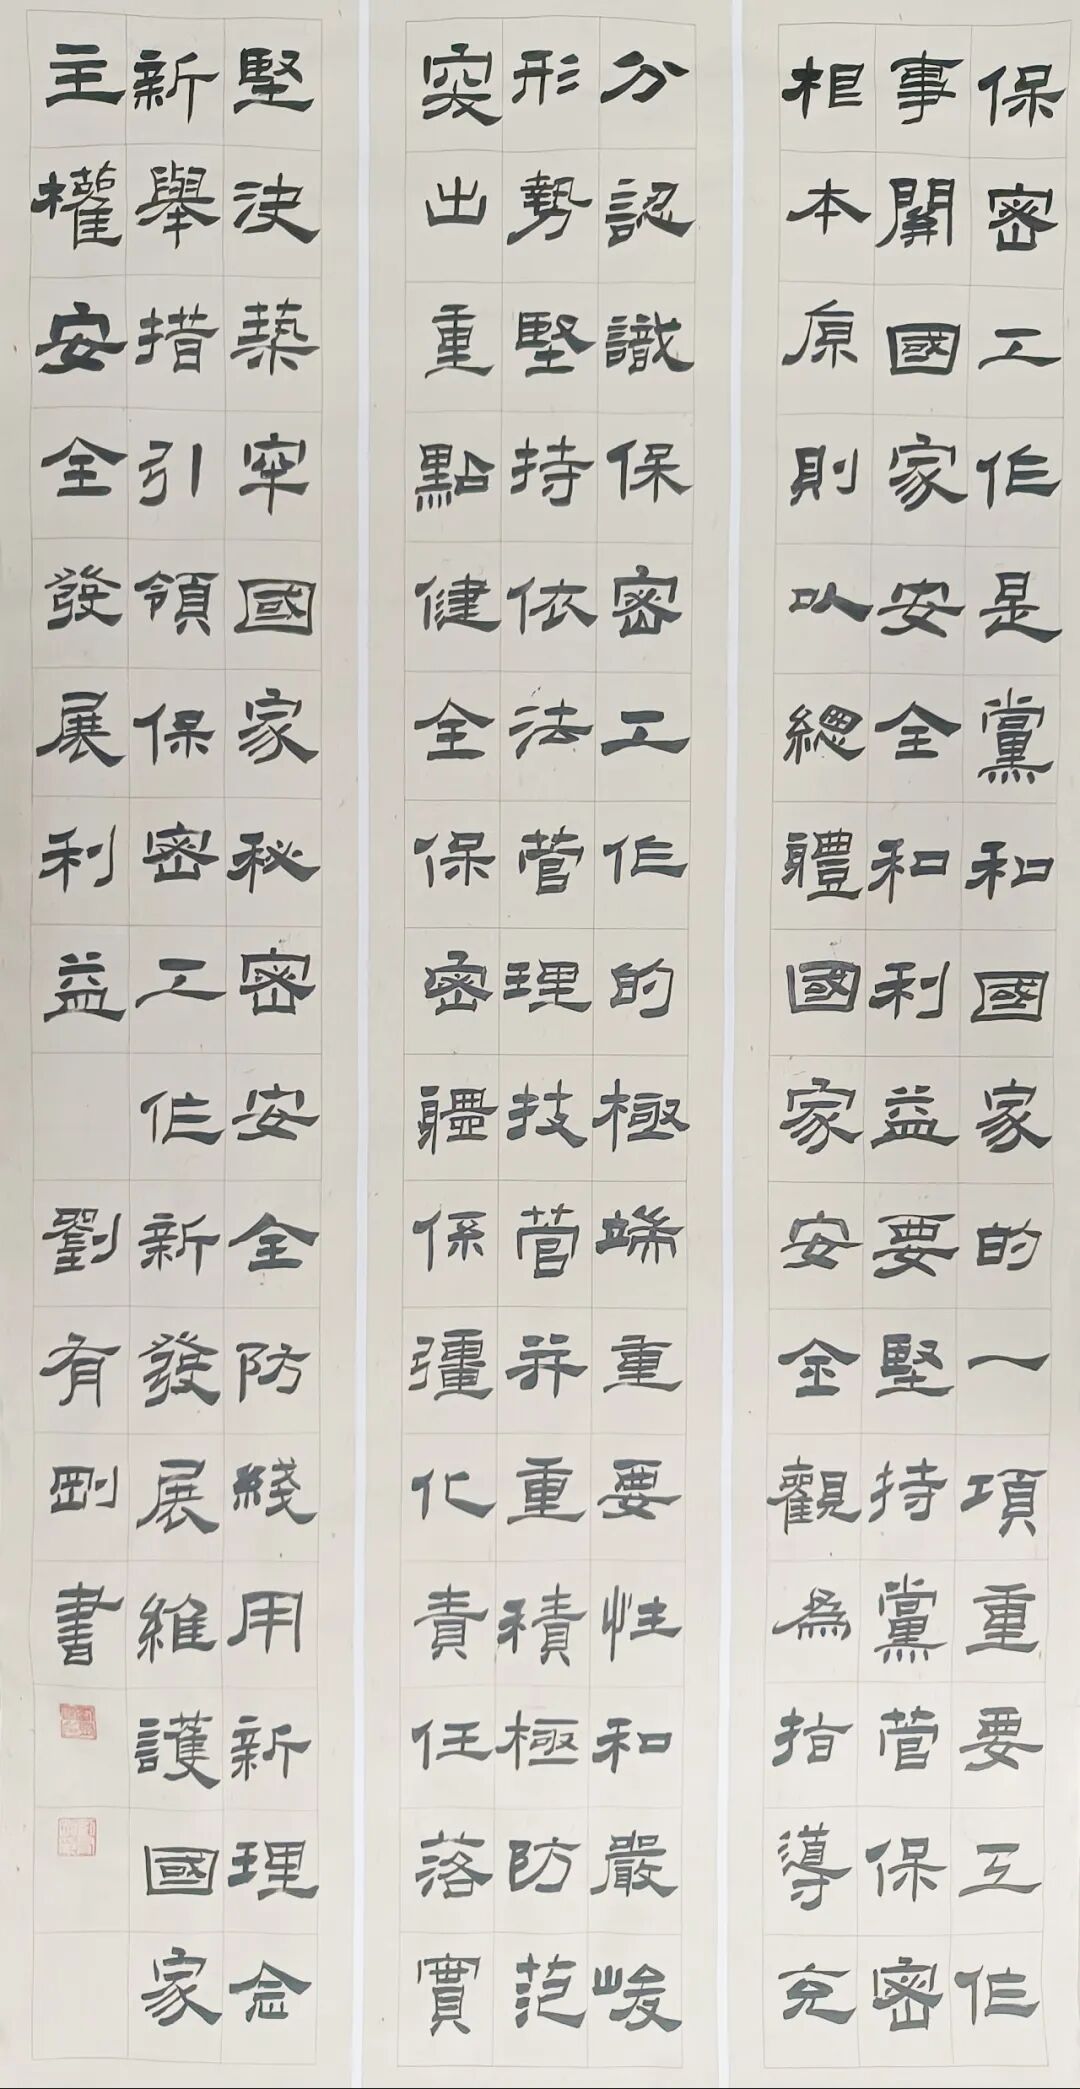 保密工作是黨和國家的一項重要工作
事關國家安全和利益要堅持黨管保密
相本原則以總體國家安全觀為指導充
分認識保密工作的極端重要性和嚴峻
形勢堅持依法管理技管并重積極防范
突出重點健全保密體係強化責任落實
堅決築牢國家秘密安全防綫用新理念
新舉措引領保密工作新發展維護國家
主權安全發展利益 劉有剛書